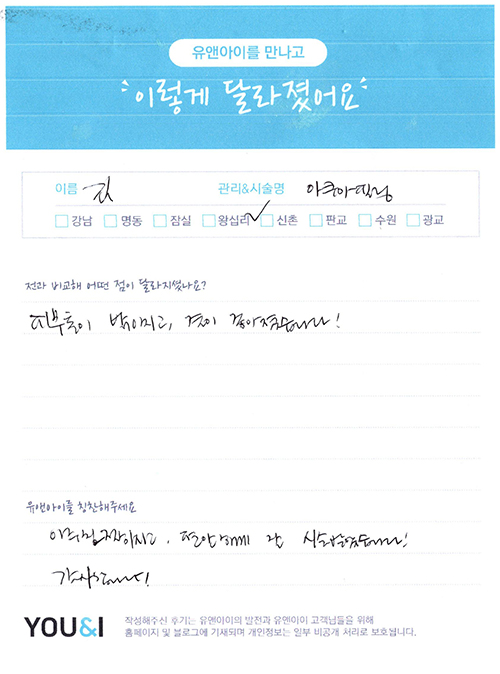 유앤아이를 만나고
이렇게 달라졌어요
이름 김 관리&시술명 아쿠아필링
강남 명동 잠실 왕십리 ✓ 신촌 판교 수원 광교
전과 비교해 어떤 점이 달라지셨나요?
피부톤이 밝아지고, 결이 좋아졌습니다!
유앤아이를 칭찬해주세요
편안하게 잘 시술받았습니다!
감사합니다!
YOU&I 작성해주신 후기는 유앤아이의 발전과 유앤아이 고객님들을 위해
홈페이지 및 블로그에 기재되며 개인정보는 일부 비공개 처리로 보호됩니다.